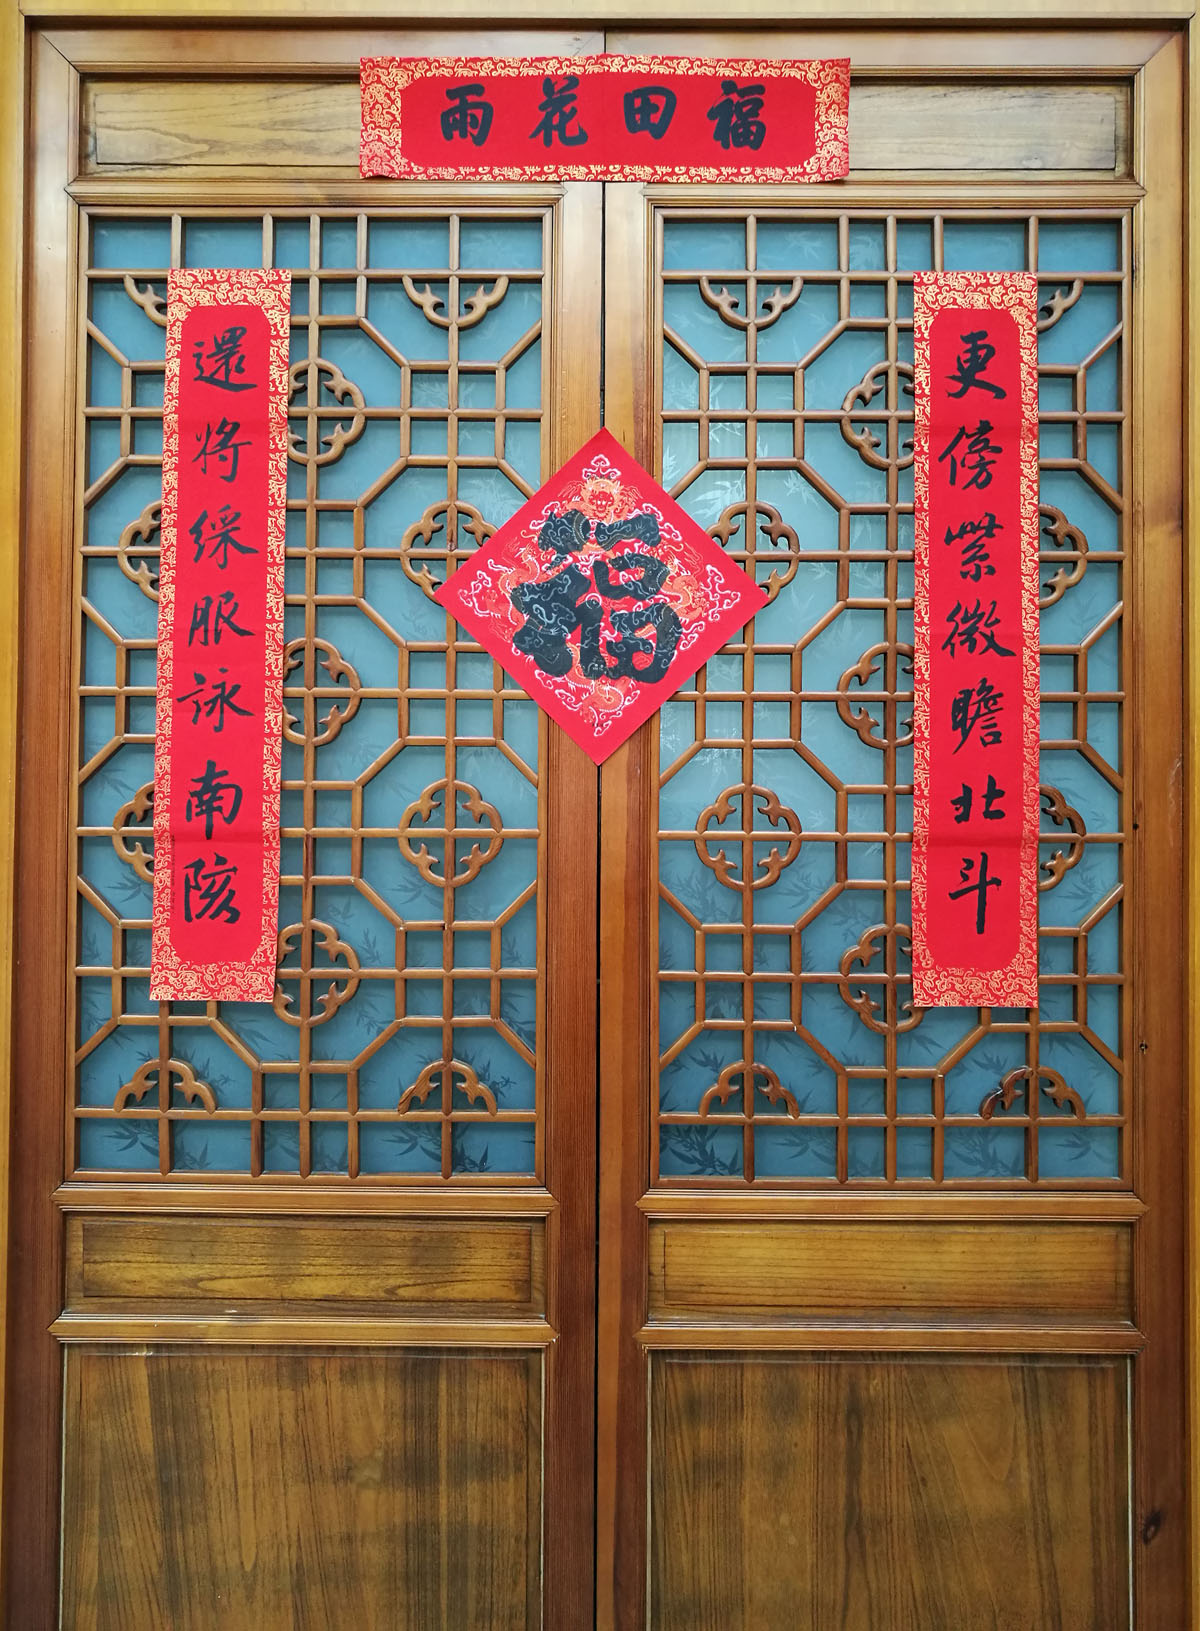 福田花雨
更傍紫微瞻北斗
還將綵服詠南陔
福